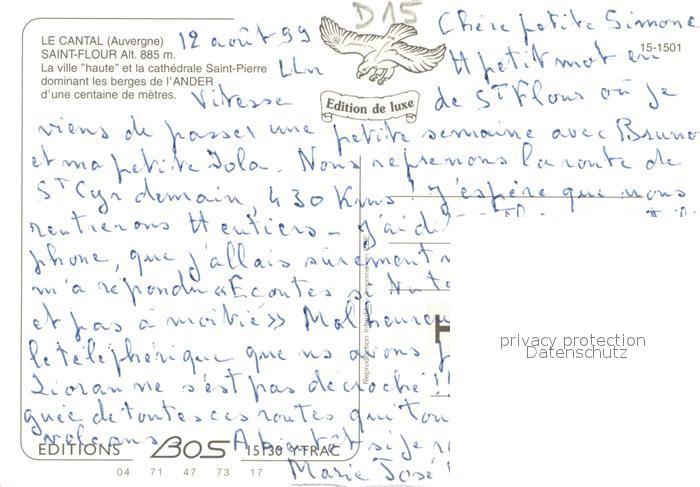 D15
LE CANTAL (Auvergne)
SAINT-FLOUR Alt. 885 m.
La ville "haute" et la cathédrale Saint-Pierre
dominant les berges de l'ANDER
d'une centaine de mètres.
15-1501
Edition de luxe
12 août 99
Chère petite Simone
Un petit mot en
Vitesse de St Flour où je
viens de passer une petite semaine avec Bruno
et ma petite Lola. Nous reprenons la route de
St Cyr demain, 430 Kms ! J'espère que nous
rentrerons entiers - J'ai di
phone, que j'allais sûrement
m'a répondu « Ecoutes
et pas à moitié » Malheureu
le téléphérique que ns avons
Lioran ne s'est pas décroché !!
guée de toutes ces routes qui tou
volcans A bientôt si je
Marie José
Reproduction Interdite
privacy protection
Datenschutz
EDITIONS BOS 15130 YTRAC
04 71 47 73 17